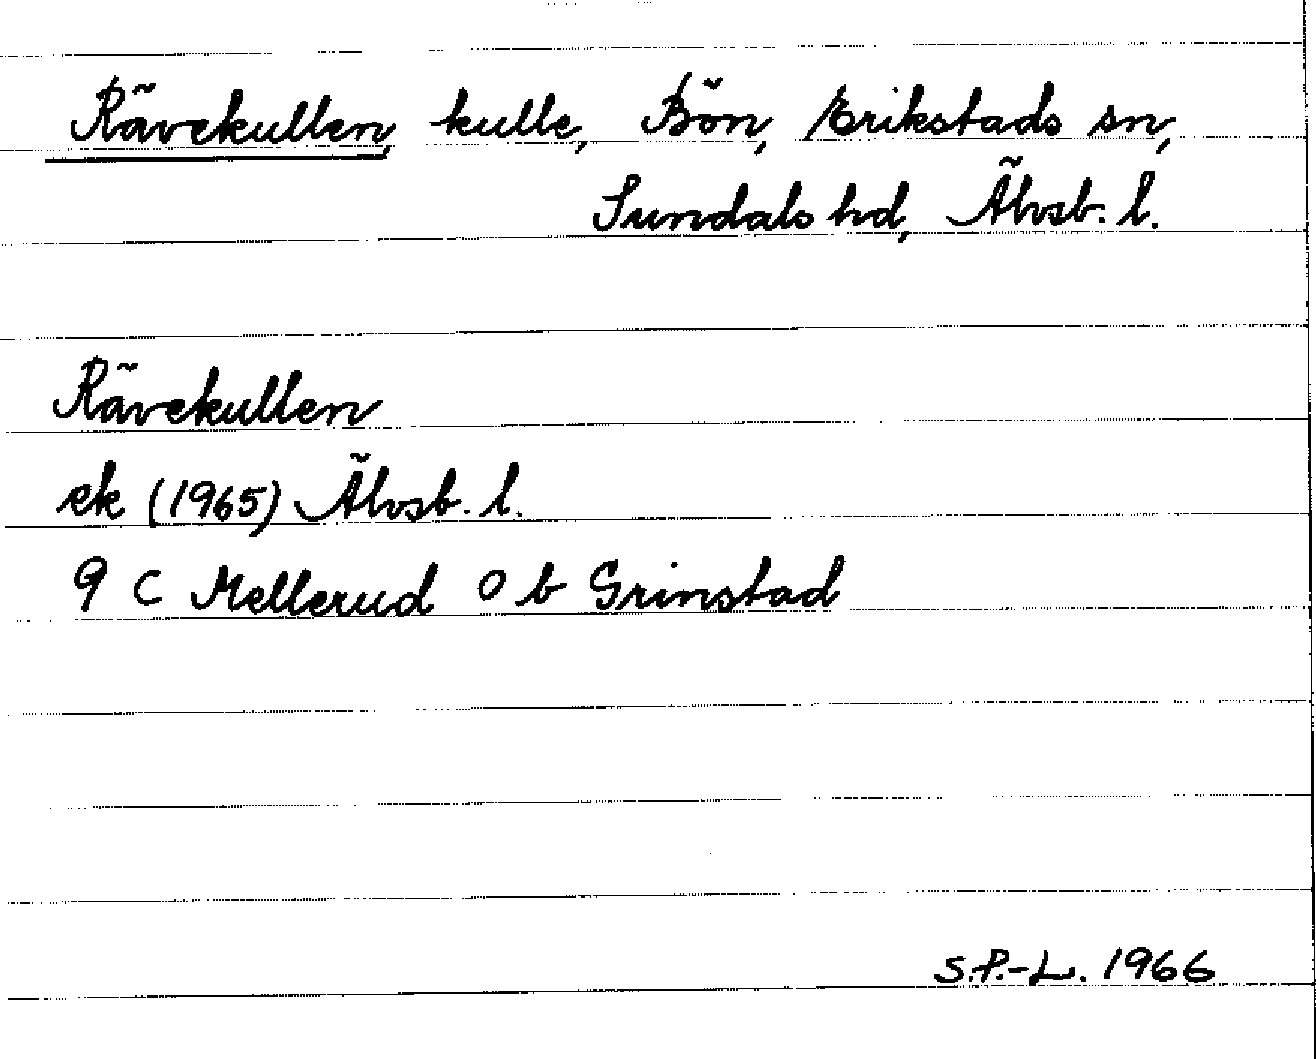 Rävekullen, kulle, Bön, Erikstads sn,
Sundals hd, Älvsb. l.
Rävekullen
ek (1965) Älvsb. l.
9 C Mellerud o b Grinstad
S.P.-L. 1966